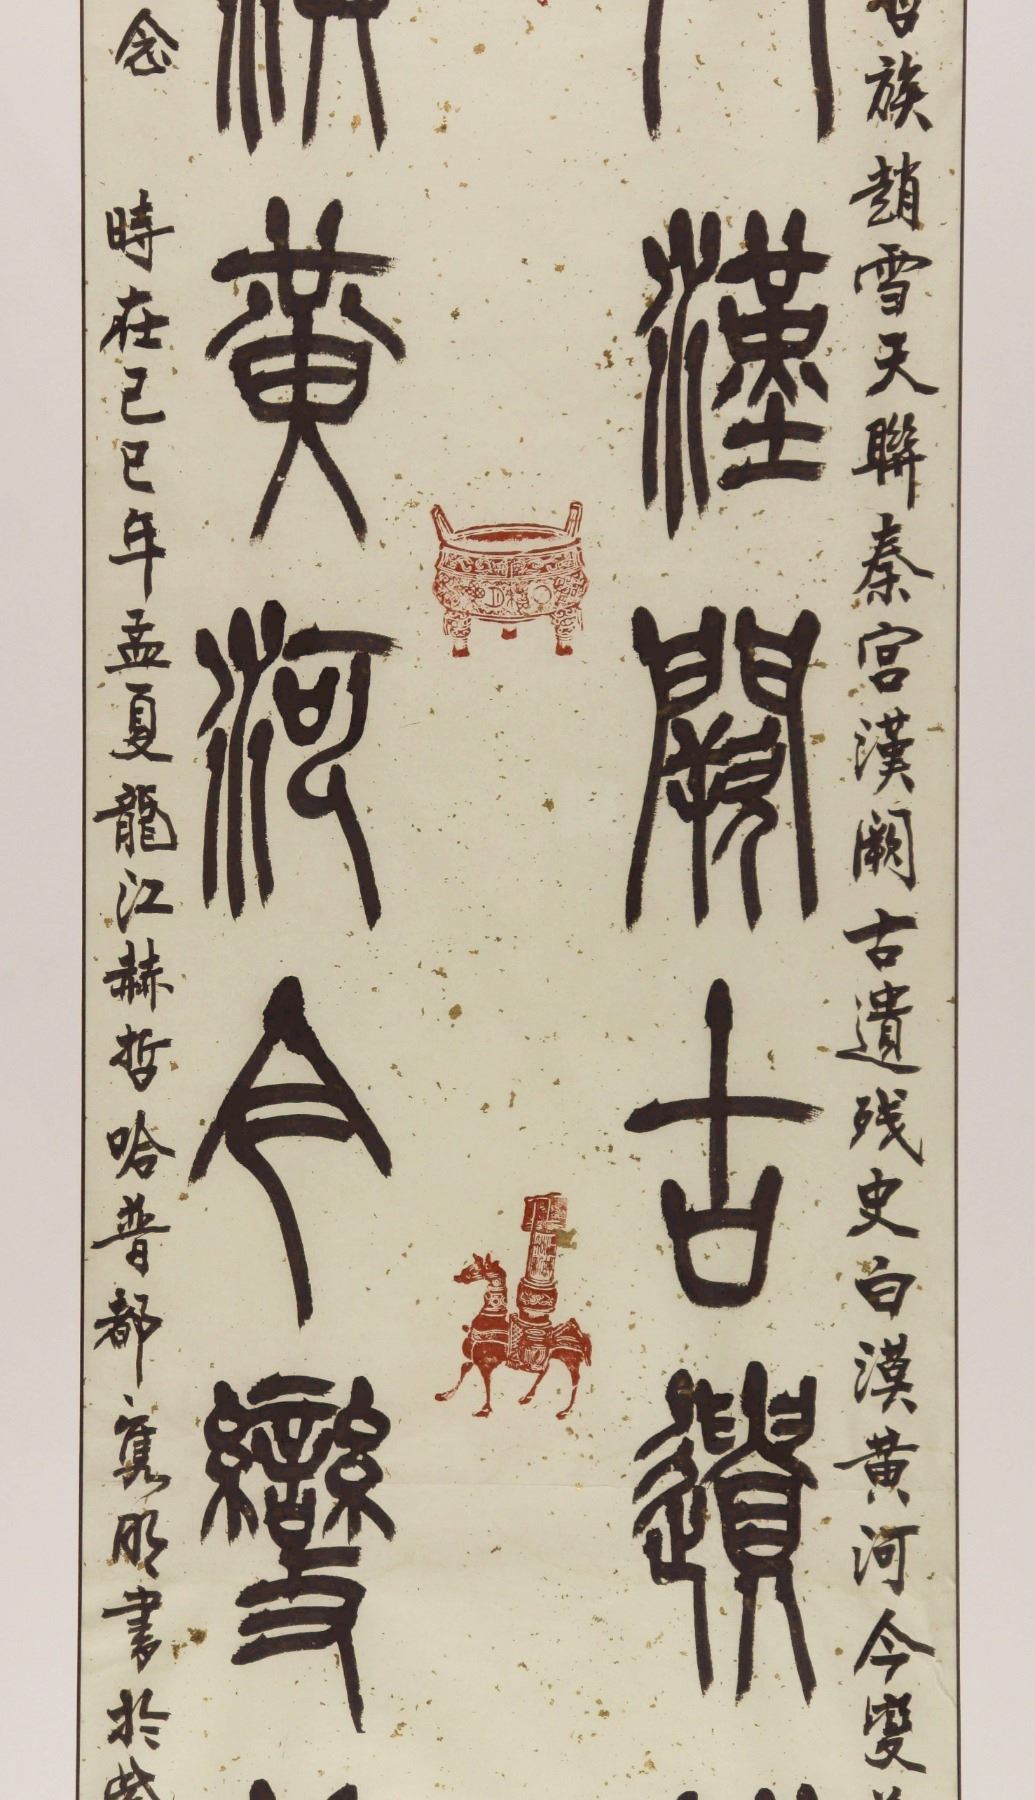 族趙雪天聯秦宮漢闕古遺残史白漠黄河今變
漢闕古遺
漠黄河今變
念 時在己巳年孟夏龍江赫哲哈普都隽明書於